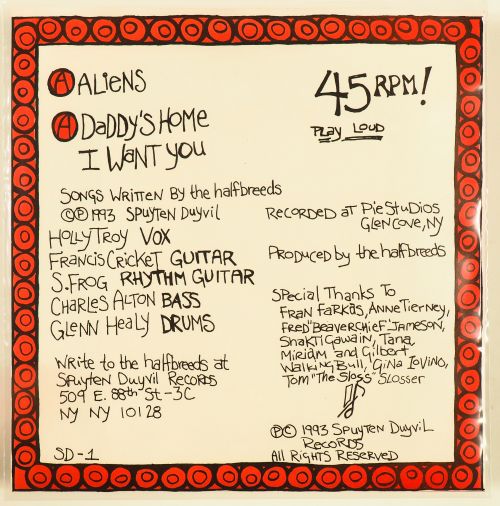 A ALiENS
A DADDY'S HOME
I WANT YOU
45 RPM!
PLAY LOUD
SONGS WRITTEN BY the halfbreeds
©℗ 1993 SPUYTEN DUYVIL
HOLLY TROY VOX
FRANCIS CRICKET GUITAR
S. FROG RHYTHM GUITAR
CHARLES ALTON BASS
GLENN HEALY DRUMS
WRITE to the halfbreeds at
SPUYTEN DUYVIL RECORDS
509 E. 88th St.-3C
NY NY 10128
SD-1
RECORDED AT PIE STUDIOS
GLEN COVE, NY
PRODUCED by the halfbreeds
SPECIAL THANKS TO
FRAN FARKAS, ANNE TIERNEY,
FRED "BEAVERCHIEF" JAMESON,
SHAKTI GAWAIN, TANA,
MIRIAM AND GILBERT
WALKING BULL, GINA IOVINO,
TOM "THE SLOSS" SLOSSER
℗© 1993 SPUYTEN DUYVIL
RECORDS
All RIGHTS RESERVED